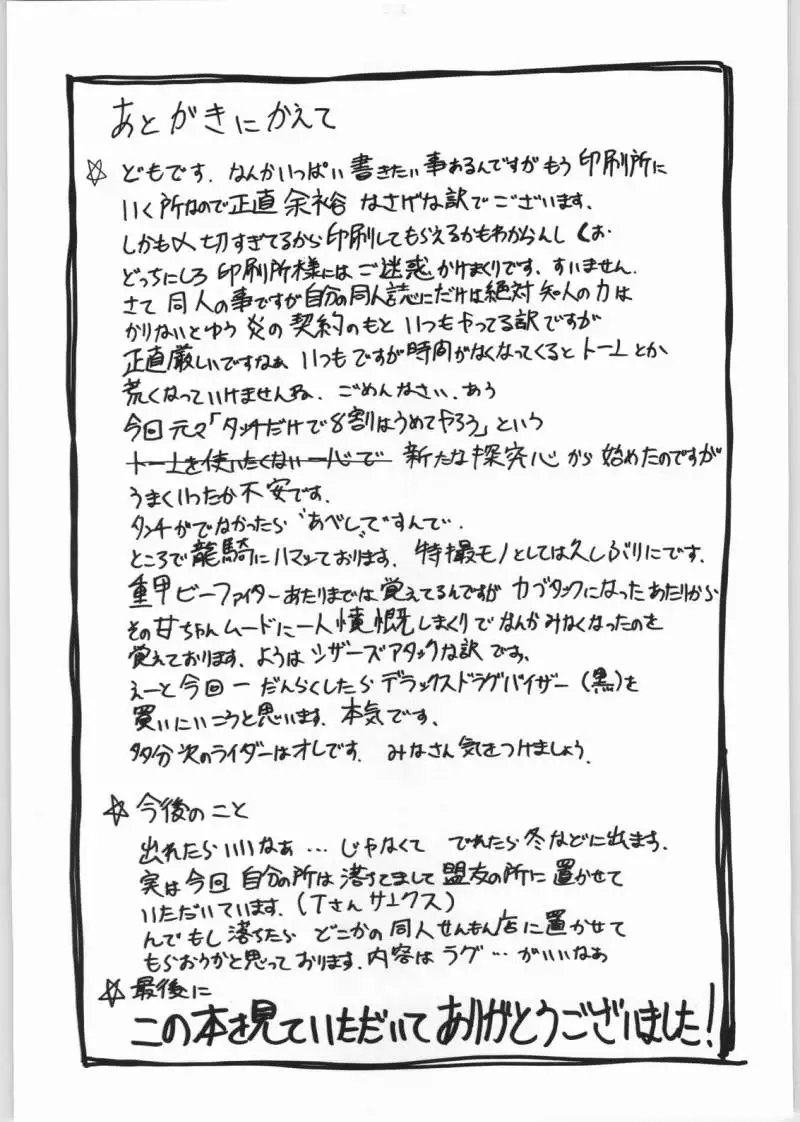 あとがきにかえて
☆ どもです. なんかいっぱい書きたい事あるんですがもう印刷所に
いく所なので正直余裕なさげな訳でございます.
しかも〆切すぎてるから印刷してもらえるかもわからんし くぉ.
どっちにしろ印刷所様にはご迷惑かけまくりです. すいません.
さて同人の事ですが自分の同人誌にだけは絶対知人の力は
かりないとゆう炎の契約のもといつもやってる訳ですが
正直厳しいですなぁ いつもですが時間がなくなってくるとトーンとか
荒くなっていけませんね. ごめんなさい. あう
今回元々「タッチだけで8割はうめてやろう」という
トーンを使いたくない一心で 新たな探究心から始めたのですが
うまくいったか不安です.
タッチがでなかったら“あべし”ですんで.
ところで龍騎にハマッております. 特撮モノとしては久しぶりにです.
重甲ビーファイターあたりまでは覚えてるんですがカブタックになったあたりから
その甘ちゃんムードに一人憤慨しまくりでなんかみなくなったのを
覚えております. ようはシザーズアタックな訳です.
えーと今回一だんらくしたらデラックスドラグバイザー(黒)を
買いにいこうと思います. 本気です.
多分次のライダーはオレです. みなさん気をつけましょう.
☆ 今後のこと
出れたらいいなぁ…じゃなくて でれたら冬などに出ます.
実は今回自分の所は落ちてまして盟友の所に置かせて
いただいています. (Tさんサンクス)
んでもし落ちたら どこかの同人せんもん店に置かせて
もらおうかと思っております. 内容はラグ…がいいなぁ
☆ 最後に
この本を見ていただいてありがとうございました!